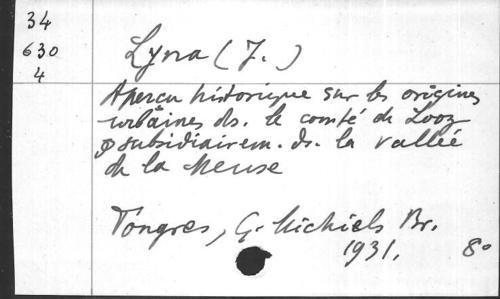 34
630
4
Lyna (J.)
Aperçu historique sur les origines
urbaines ds. le comté de Looz
& subsidiairem. ds. la vallée
de la Meuse
Tongres, G. Michiels Br.
1931. 8°